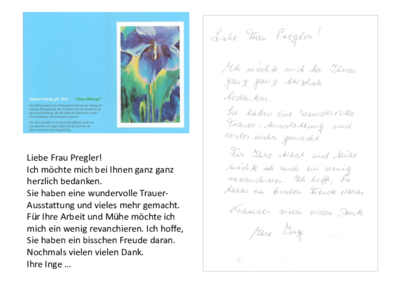 Liebe Frau Pregler!
Ich möchte mich bei Ihnen ganz ganz
herzlich bedanken.
Sie haben eine wundervolle Trauer-
Ausstattung und vieles mehr gemacht.
Für Ihre Arbeit und Mühe möchte ich
mich ein wenig revanchieren. Ich hoffe,
Sie haben ein bisschen Freude daran.
Nochmals vielen vielen Dank.
Ihre Inge ...
Liebe Frau Pregler!
Ich möchte mich bei Ihnen
ganz ganz herzlich
bedanken.
Sie haben eine wundervolle
Trauer-Ausstattung und
vieles mehr gemacht
Für Ihre Arbeit und Mühe
möchte ich mich ein wenig
revanchieren. Ich hoffe, Sie
haben ein bisschen Freude daran.
Nochmals vielen vielen Dank
Ihre Inge